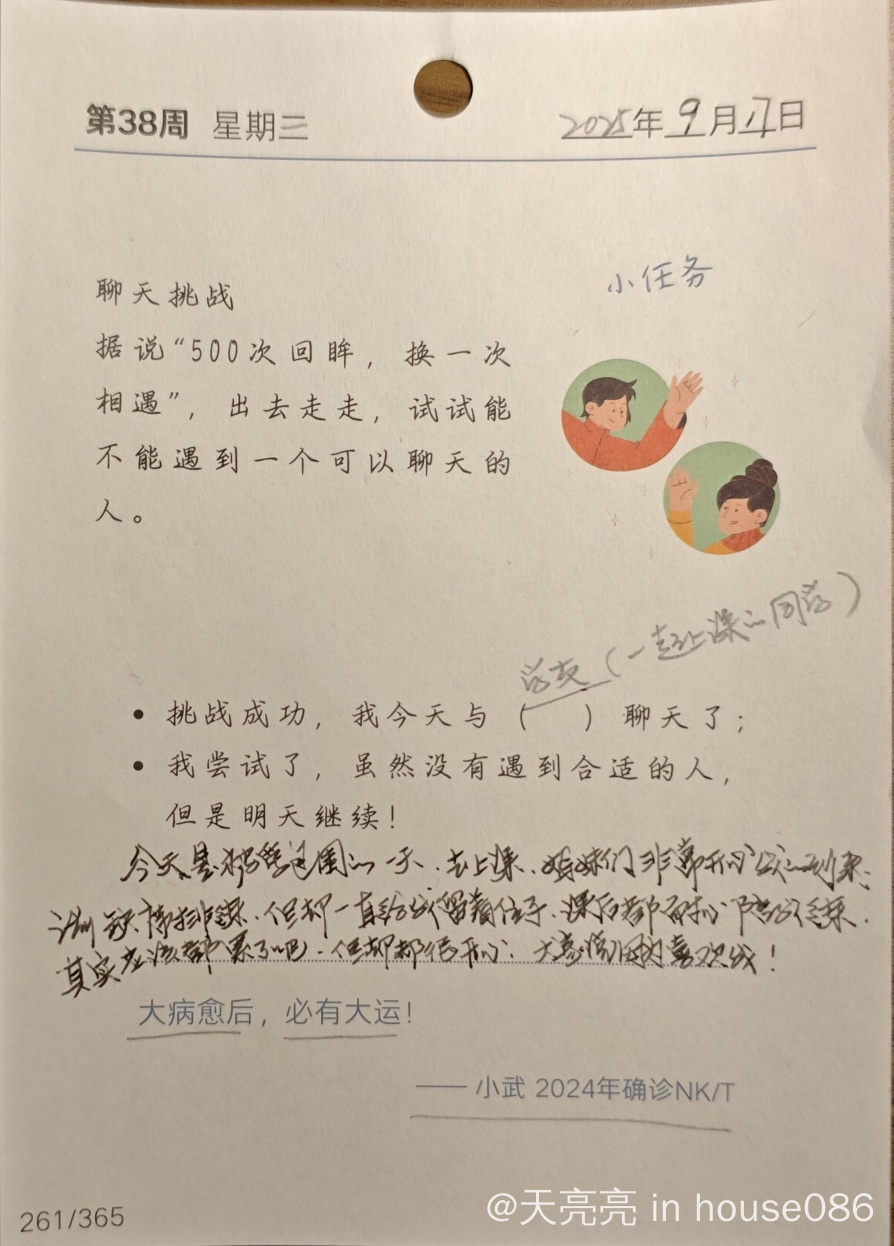 第38周 星期三 2025年9月17日
小任务
聊天挑战
据说“500次回眸，换一次
相遇”，出去走走，试试能
不能遇到一个可以聊天的
人。
学友（一起上课的同学）
• 挑战成功，我今天与（ ）聊天了；
• 我尝试了，虽然没有遇到合适的人，
但是明天继续！
今天是被包围的一天.去上课.姐妹们非常开心我的到来;
排练.但却一直给我留着位子.课后都
其实应该都累了吧.但却都很开心.大喜欢我!
大病愈后，必有大运！
—— 小武 2024年确诊NK/T
261/365
@天亮亮 in house086